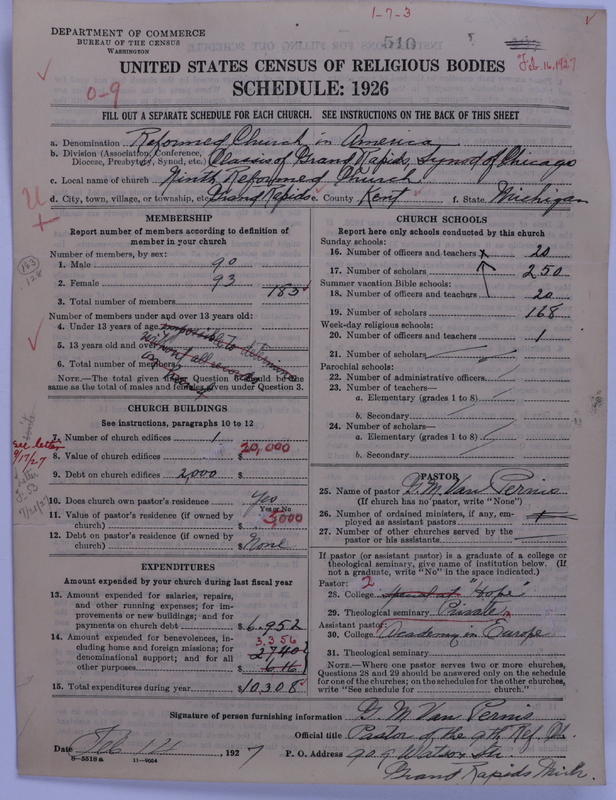 1-7-3
DEPARTMENT OF COMMERCE
BUREAU OF THE CENSUS
WASHINGTON
510
Feb. 16, 1927
UNITED STATES CENSUS OF RELIGIOUS BODIES
SCHEDULE: 1926
0-9
FILL OUT A SEPARATE SCHEDULE FOR EACH CHURCH. SEE INSTRUCTIONS ON THE BACK OF THIS SHEET
a. Denomination Reformed Church in America
b. Division (Association, Conference, Diocese, Presbytery, Synod, etc.) Classis of Grand Rapids, Synod of Chicago
c. Local name of church Ninth Reformed Church
d. City, town, village, or township, etc. Grand Rapids e. County Kent f. State Michigan
MEMBERSHIP
Report number of members according to definition of
member in your church
Number of members, by sex:
1. Male 90
2. Female 93
3. Total number of members 183
Number of members under and over 13 years old:
4. Under 13 years of age impossible to determine
5. 13 years old and over without all records
6. Total number of members
NOTE.—The total given under Question 6 should be the
same as the total of males and females given under Question 3.
CHURCH BUILDINGS
See instructions, paragraphs 10 to 12
7. Number of church edifices 1
see letter
9/17/27
8. Value of church edifices $ 20,000
9. Debt on church edifices 2000 $
10. Does church own pastor's residence Yes
Yes or No
11. Value of pastor's residence (if owned by
church) $ 5000
12. Debt on pastor's residence (if owned by
church) $ None
EXPENDITURES
Amount expended by your church during last fiscal year
13. Amount expended for salaries, repairs,
and other running expenses; for im-
provements or new buildings; and for
payments on church debt $ 6,952
14. Amount expended for benevolences, in- 3,356
cluding home and foreign missions; for 2740
denominational support; and for all
other purposes $ 616
15. Total expenditures during year $ 10,308
CHURCH SCHOOLS
Report here only schools conducted by this church
Sunday schools:
16. Number of officers and teachers x 20
17. Number of scholars 250
Summer vacation Bible schools:
18. Number of officers and teachers 20
19. Number of scholars 168
Week-day religious schools:
20. Number of officers and teachers 1
21. Number of scholars
Parochial schools:
22. Number of administrative officers
23. Number of teachers—
a. Elementary (grades 1 to 8)
b. Secondary
24. Number of scholars—
a. Elementary (grades 1 to 8)
b. Secondary
PASTOR
25. Name of pastor G. M. Van Pernis
(If church has no pastor, write "None")
26. Number of ordained ministers, if any, em-
ployed as assistant pastors
27. Number of other churches served by the
pastor or his assistants
If pastor (or assistant pastor) is a graduate of a college or
theological seminary, give name of institution below. (If
not a graduate, write "No" in the space indicated.)
Pastor: 2
28. College "Hope"
29. Theological seminary Private
Assistant pastor:
30. College Academy in Europe
31. Theological seminary
NOTE.—Where one pastor serves two or more churches,
Questions 28 and 29 should be answered only on the schedule
for one of the churches; on the schedules for the other churches,
write "See schedule for church."
Signature of person furnishing information G. M. Van Pernis
Official title Pastor of the 9th Ref. Ch.
Date Feb 12, 1927 P. O. Address 909 Watson Str.
8-5518a 11-9064 Grand Rapids Mich.